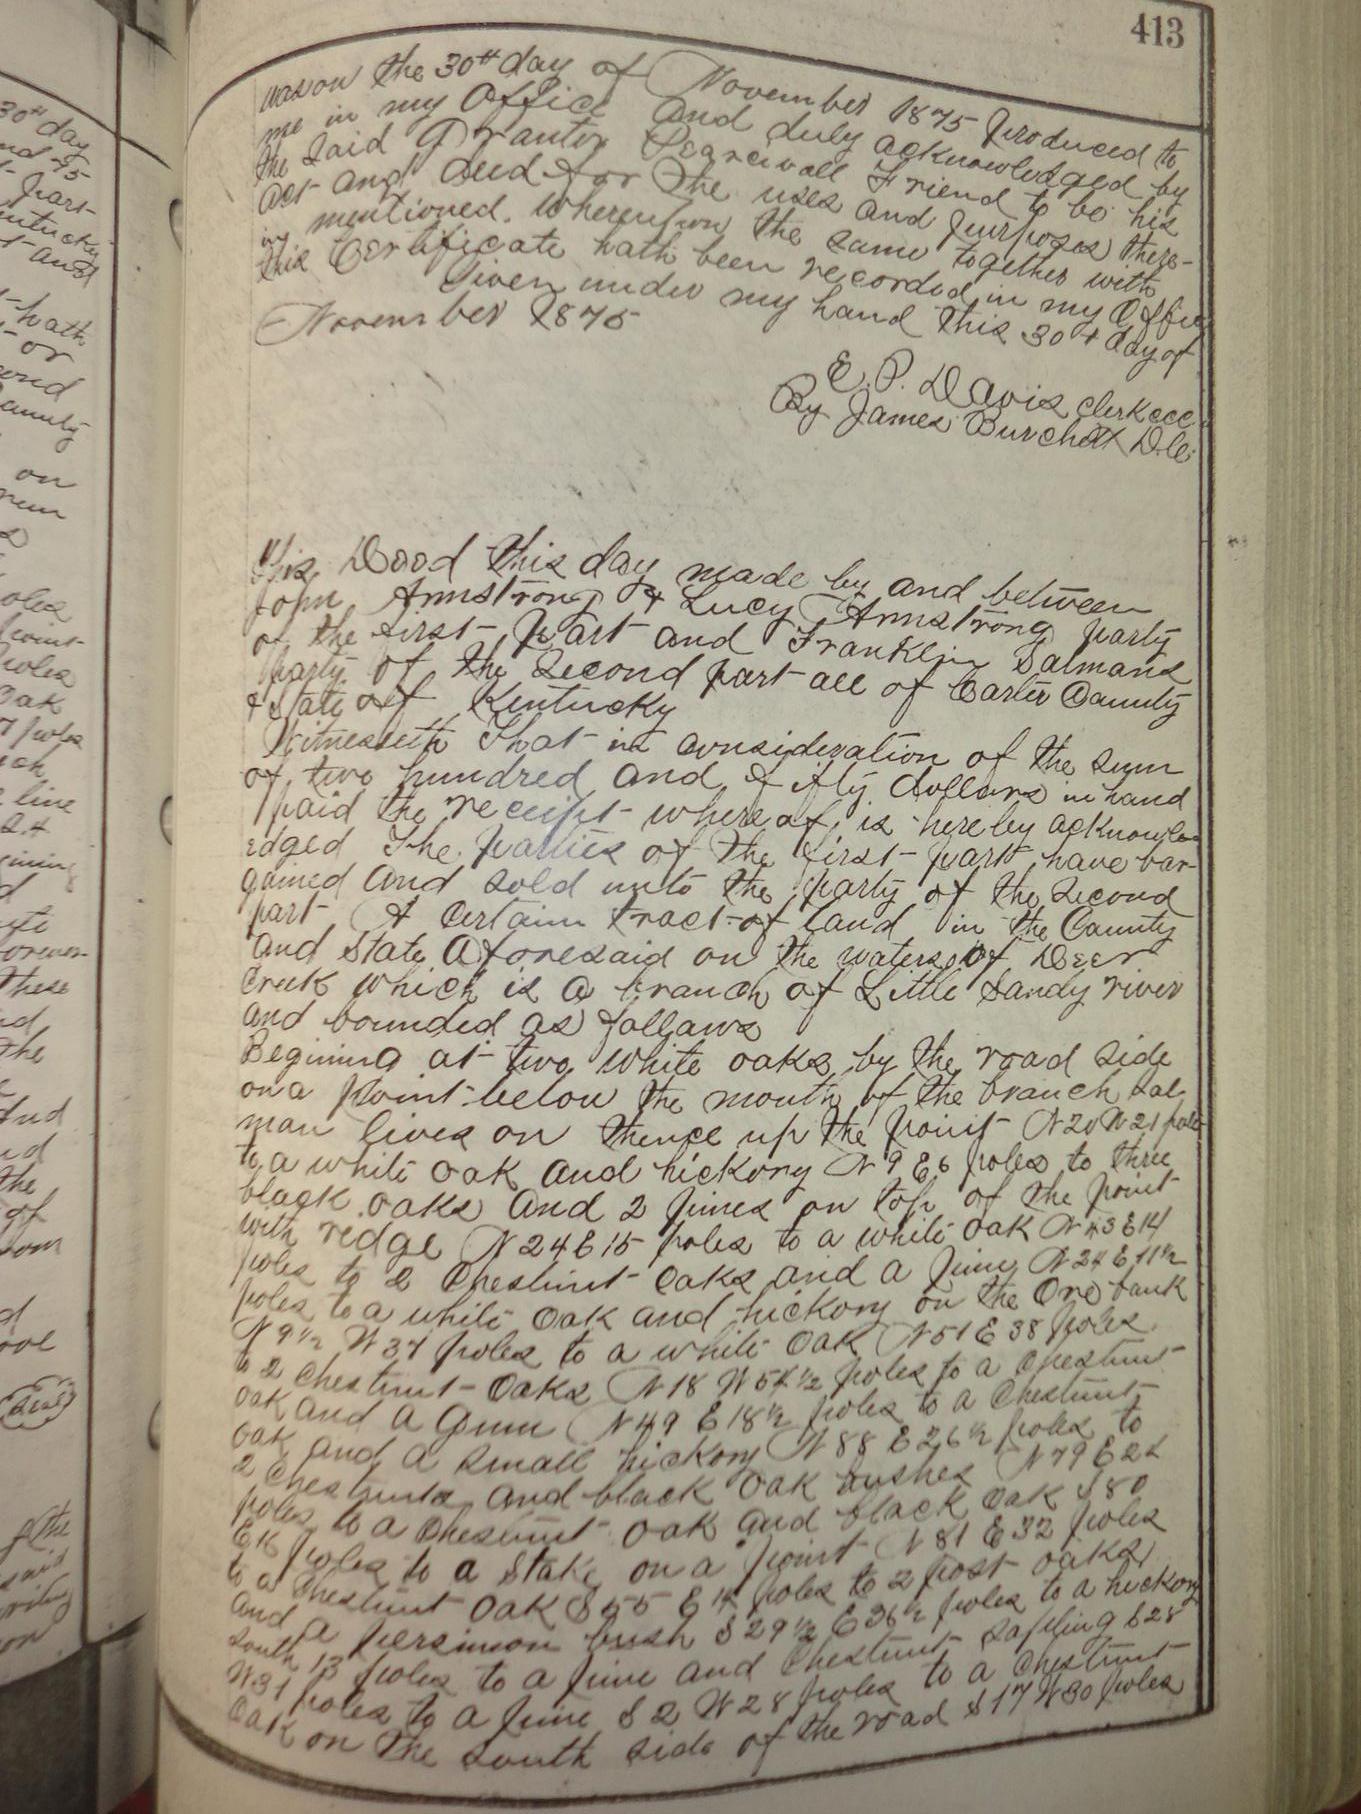 413
was on the 30th day of November 1875 produced to
me in my Office and duly acknowledged by
the said Grantor Pearcivall Friend to be his
act and deed for the uses and purposes there-
in mentioned. Whereupon the same together with
this Certificate hath been recorded in my Office
Given under my hand this 30th day of
November 1875
E. P. Davis Clerk ccc
By James Burchett D.C.
This Deed this day made by and between
John Armstrong & Lucy Armstrong party
of the first part and Franklin Salmans
party of the Second part all of Carter County
& State of Kentucky
Witnesseth That in consideration of the sum
of two hundred and fifty dollars in hand
paid the receipt whereof is hereby acknowle-
edged The parties of the first part have bar-
gained and sold unto the party of the Second
part A Certain tract of land in the County
and State Aforesaid on the waters of Deer
Creek which is a branch of Little Sandy river
and bounded as follows
Begining at two white oaks by the road side
on a point below the mouth of the branch Sal
man lives on thence up the point N 20 W 21 poles
to a white oak and hickory N 9 E 6 poles to three
black oaks and 2 pines on top of the point
with redge N 24 E 15 poles to a white oak N 43 E 14
poles to 2 Chestnut oaks and a pine N 24 E 11½
poles to a white oak and hickory on the Ore bank
N 9½ W 37 poles to a white oak N 51 E 38 poles
to 2 chestnut oaks N 18 W 54½ poles to a Chestnut
oak and a Gum N 49 E 18½ poles to a Chestnut
oak and a small hickory N 88 E 26½ poles to
2 Chestnuts and black oak bushes N 79 E 22
poles to a Chestnut oak and black oak S 80
E 16 poles to a Stake on a point N 81 E 32 poles
to a Chestnut oak S 55 E 14 poles to 2 post oaks
and a persimon bush S 29½ E 36½ poles to a hickory
South 13 poles to a pine and Chestnut sapling S 28
W 31 poles to a pine S 2 W 28 poles to a Chestnut
Oak on the south side of the road S 17 W 30 poles